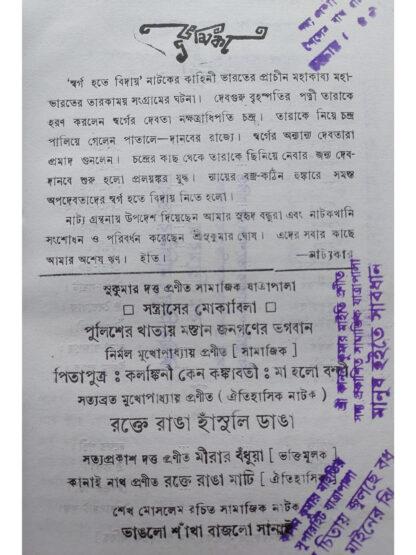 ভূমিকা
'স্বর্গ হতে বিদায়' নাটকের কাহিনী ভারতের প্রাচীন মহাকাব্য মহা-
ভারতের তারকাময় সংগ্রামের ঘটনা। দেবগুরু বৃহস্পতির পত্নী তারাকে
হরণ করলেন স্বর্গের দেবতা নক্ষত্রাধিপতি চন্দ্র। তারাকে নিয়ে চন্দ্র
পালিয়ে গেলেন পাতালে—দানবের রাজ্যে। স্বর্গের অন্যান্য দেবতারা
প্রমাদ গুনলেন। চন্দ্রের কাছ থেকে তারাকে ছিনিয়ে নেবার জন্য দেব-
দানবে শুরু হলো প্রলয়ঙ্কর যুদ্ধ। ন্যায়ের বজ্র-কঠিন হুঙ্কারে সমস্ত
অপদেবতাদের স্বর্গ হতে বিদায় নিতে হলো।
নাট্য গ্রন্থনায় উপদেশ দিয়েছেন আমার সুহৃদ বন্ধুরা এবং নাটকখানি
সংশোধন ও পরিবর্ধন করেছেন শ্রীসুকুমার ঘোষ। এদের সবার কাছে
আমার অশেষ ঋণ। ইতি। —নাট্যকার
সুকুমার দত্ত প্রণীত সামাজিক যাত্রাপালা
সন্ত্রাসের মোকাবিলা
পুলিশের খাতায় মস্তান জনগণের ভগবান
নির্মল মুখোপাধ্যায় প্রণীত [ সামাজিক ]
পিতাপুত্র : কলঙ্কিনী কেন কঙ্কাবতী : মা হলো বন্দী
সত্যব্রত মুখোপাধ্যায় প্রণীত ( ঐতিহাসিক নাটক )
রক্তে রাঙা হাঁসুলি ডাঙা
সত্যপ্রকাশ দত্ত প্রণীত মীরার বঁধুয়া [ ভক্তিমূলক ]
কানাই নাথ প্রণীত রক্তে রাঙা মাটি ( ঐতিহাসিক
শেখ মোসলেম রচিত সামাজিক নাটক
ভাঙলো শাঁখা বাজলো সানাই
শ্রী কানন কুমার মাইতি প্রণীত
সদ্য প্রকাশিত সামাজিক যাত্রাপালা
মানুষ হইতে সাবধান
কুমার মাইতির
সুপারহিট যাত্রাপালা
চিতায় জ্বলছে বধূ